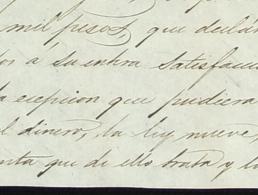 mil pesos que declar
a su entera satisfac
a escepcion que pudiera
l dinero, la ley nueve,
nta que de ello trata y l